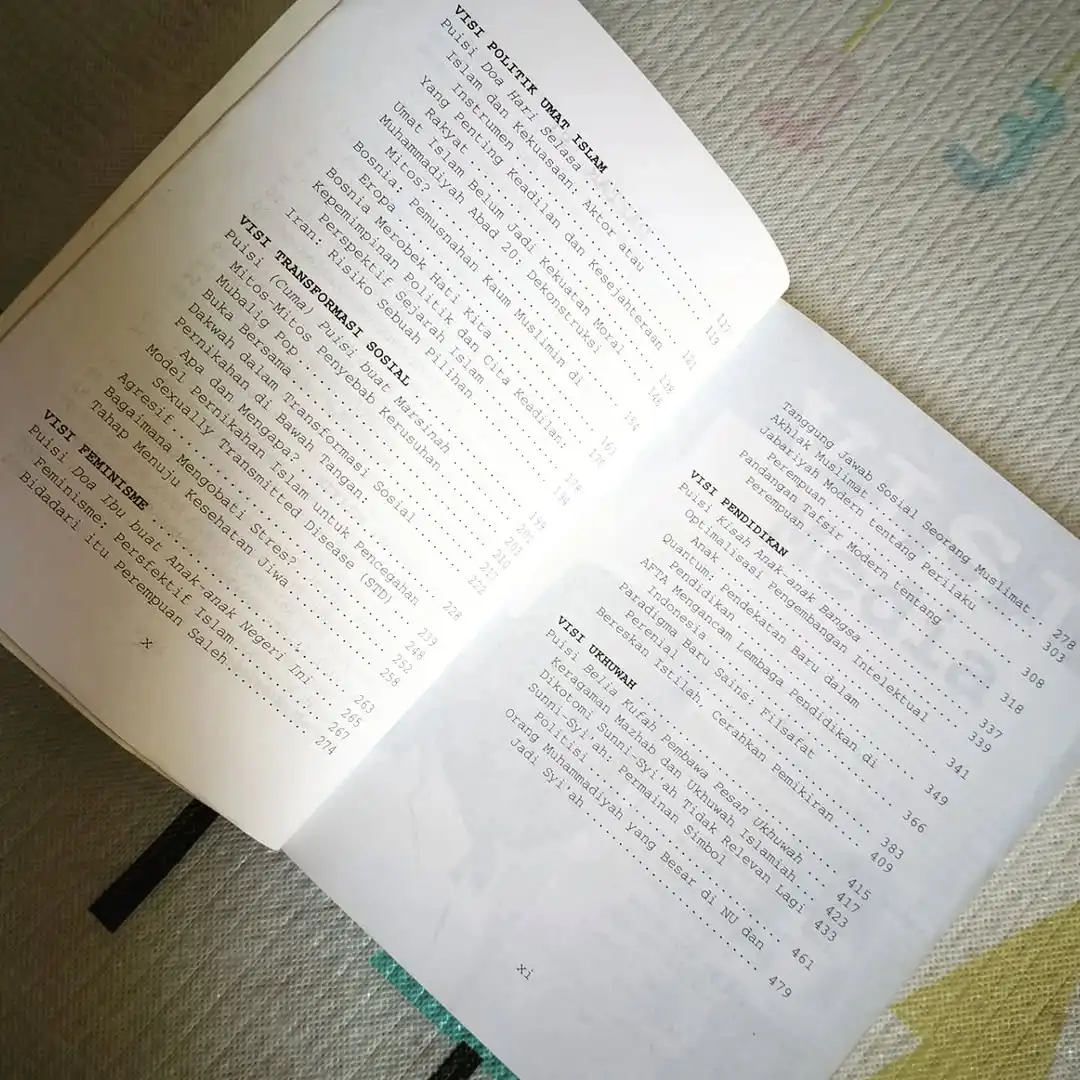 VISI POLITIK UMAT ISLAM
Puisi Doa Hari Selasa
Islam dan Kekuasaan: Aktor atau
Instrumen
Yang Penting Keadilan dan Kesejahteran
Rakyat
Umat Islam Belum Jadi Kekuatan Moral
Muhammadiyah Abad 20: Dekonstruksi
Mitos?
Bosnia: Pemusnahan Kaum Muslimin di
Eropa
Bosnia Merobek Hati Kita
Kepemimpinan Politik dan Cita Keadilan:
Perspektif Sejarah Islam
Iran: Risiko Sebuah Pilihan
VISI TRANSFORMASI SOSIAL
Puisi (Cuma) Puisi buat Marsinah
Mitos-Mitos Penyebab Kerusuhan
Mubalig Pop
Buka Bersama
Dakwah dalam Transformasi Sosial
Pernikahan di Bawah Tangan:
Apa dan Mengapa?
Sexually Transmitted Disease (STD)
Model Pernikahan Islam untuk Pencegahan
Agresif
Bagaimana Mengobati Stres?
Tahap Menuju Kesehatan Jiwa
VISI FEMINISME ... 263
Puisi Doa Ibu buat Anak-anak Negeri Ini ... 265
Feminisme: Persfektif Islam ... 267
Bidadari itu Perempuan Saleh ... 274
x
Tanggung Jawab Sosial Seorang Muslimat ... 278
Akhlak Muslimat ... 303
Jabariyah Modern tentang Perilaku
Perempuan ... 308
Pandangan Tafsir Modern tentang
Perempuan ... 318
VISI PENDIDIKAN ... 337
Puisi Kisah Anak-anak Bangsa ... 339
Optimalisasi Pengembangan Intelektual
Anak ... 341
Quantum: Pendekatan Baru dalam
Pendidikan ... 349
AFTA Mengancam Lembaga Pendidikan di
Indonesia ... 366
Paradigma Baru Sains: Filsafat
Perenial ... 383
Bereskan Istilah, Cerahkan Pemikiran ... 409
VISI UKHUWAH ... 415
Puisi Belia Kufah Pembawa Pesan Ukhuwah ... 417
Keragaman Mazhab dan Ukhuwah Islamiah ... 423
Dikotomi Sunni-Syi'ah Tidak Relevan Lagi ... 433
Sunni-Syi'ah: Permainan Simbol
Politisi ... 461
Orang Muhammadiyah yang Besar di NU dan
Jadi Syi'ah ... 479
xi